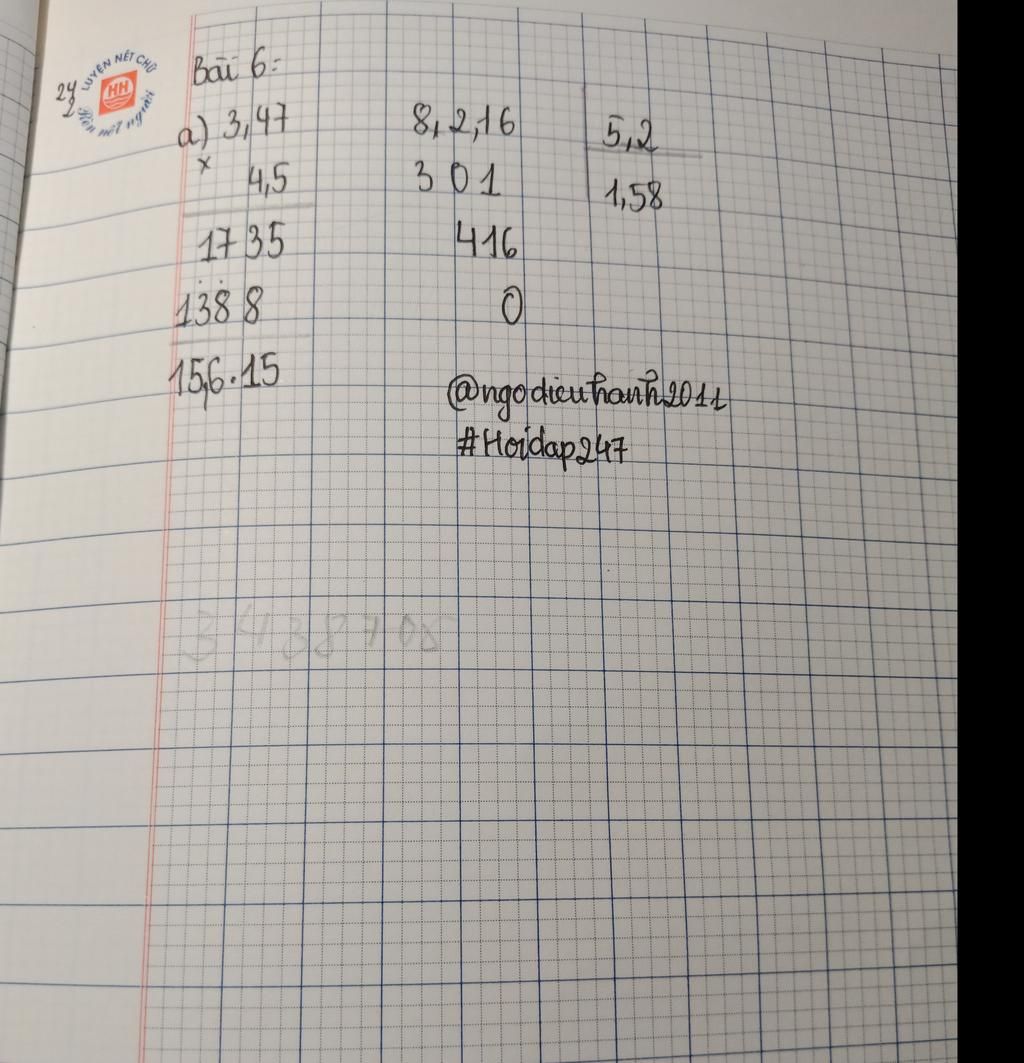 LUYỆN NÉT CHỮ
HH
Rèn nết người
24
2
Bài 6:
a) 3,47
x
4,5
1735
1388
15,6.15
8,2,16 5,2
301 1,58
416
0
@ngodieuhanh2011
#Hoidap247
3438705